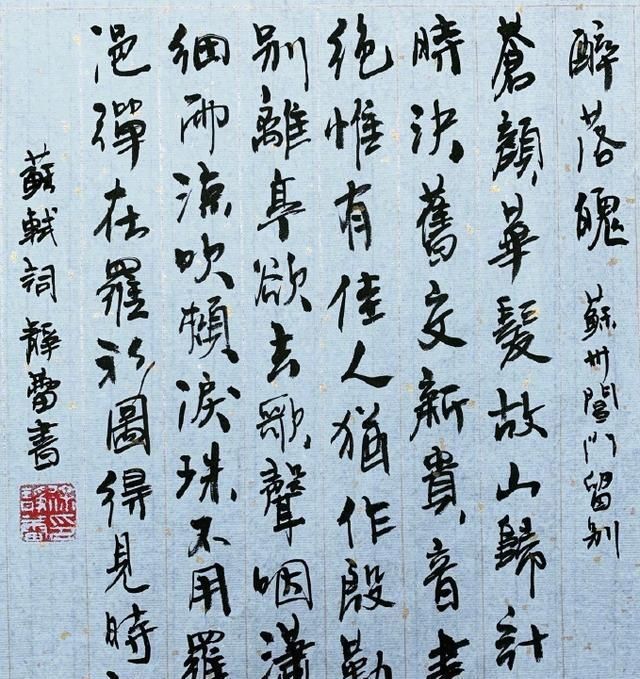 醉落魄 蘇州閶門留别
蒼顏華髮故山歸計
時決舊交新貴音書
絶惟有佳人猶作殷勤
别離亭欲去歌聲咽瀟
細雨涼吹頰淚珠不用羅
浥彈在羅衫圖得見時
蘇軾詞靜蕾書